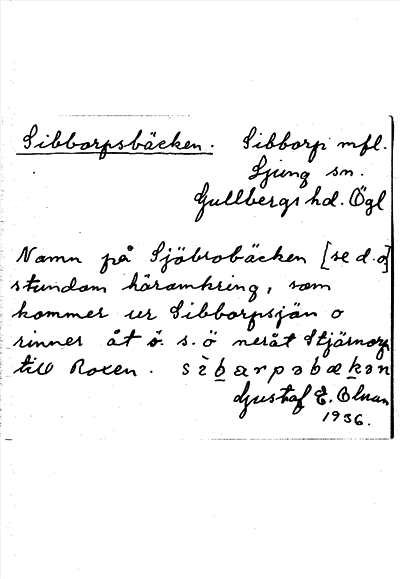 Sibborpsbäcken. Sibborp mfl.
Ljung sn.
Gullbergs hd. Ögl
Namn på Sjöbrobäcken [se d.o]
stundom häromkring, som
kommer ur Sibborpsjön o
rinner åt ö. s.ö neråt Stjärnorp
till Roxen. sìbarpəbækən
Gustaf E. Olsson
1936.